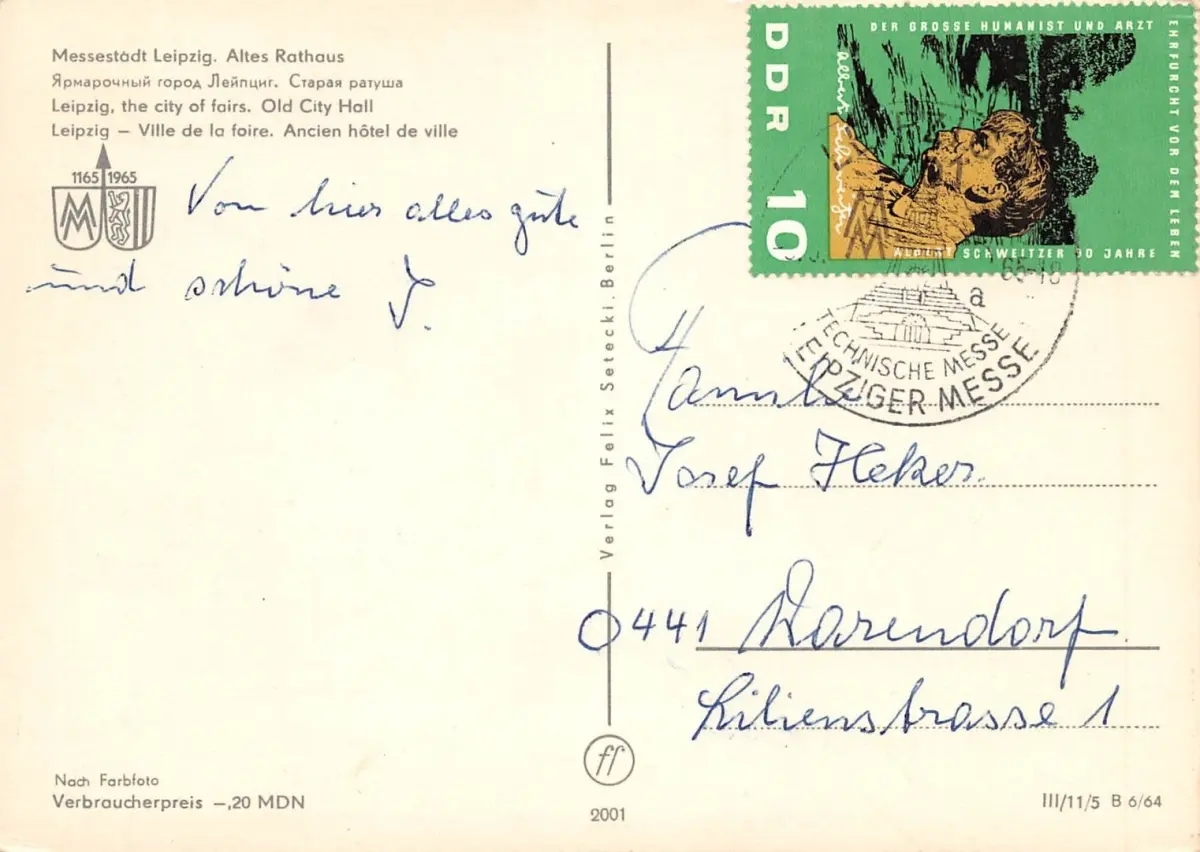 Messestadt Leipzig. Altes Rathaus
Ярмарочный город Лейпциг. Старая ратуша
Leipzig, the city of fairs. Old City Hall
Leipzig – Ville de la foire. Ancien hôtel de ville
1165 1965
Von hier alles gute
und schöne J.
Verlag Felix Setecki, Berlin
DDR 10
DER GROSSE HUMANIST UND ARZT
EHRFURCHT VOR DEM LEBEN
ALBERT SCHWEITZER 90 JAHRE
Albert Schweitzer
65-18
a
TECHNISCHE MESSE
LEIPZIGER MESSE
Familie
Josef Heker
441 Warendorf
Lilienstrasse 1
ff
2001
Nach Farbfoto
Verbraucherpreis –,20 MDN
III/11/5 B 6/64